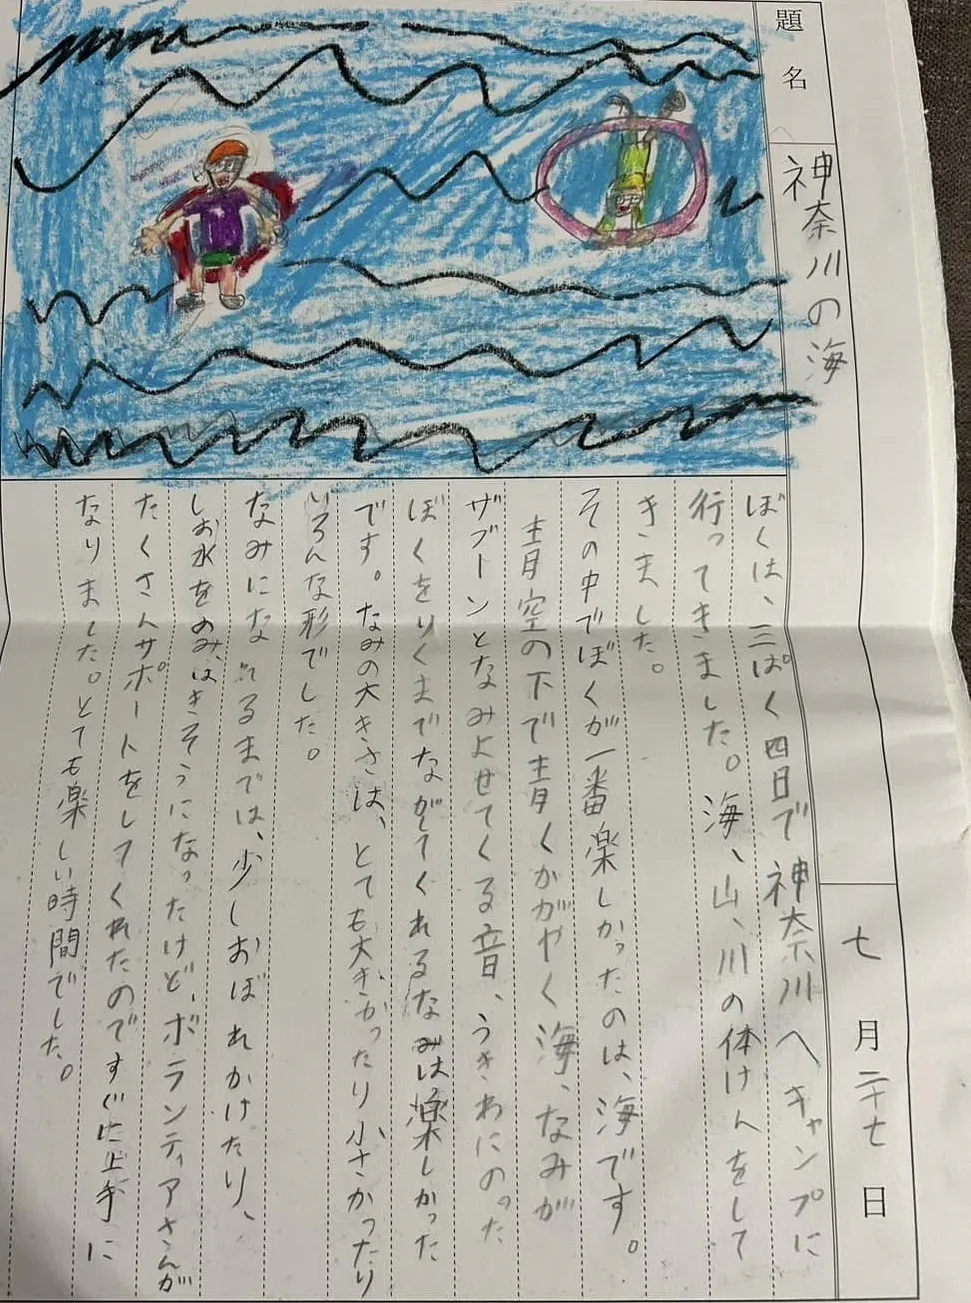 題名
神奈川の海
七月二十七日
ぼくは、三ぱく四日で神奈川へキャンプに
行ってきました。海、山、川の体けんをして
きました。
その中でぼくが一番楽しかったのは、海です。
青空の下で青くかがやく海、なみが
ザブーンとなみよせてくる音、うきわにのった
ぼくをりくまでながしてくれるなみは楽しかった
です。なみの大きさは、とても大きかったり小さかったり
いろんな形でした。
なみになれるまでは、少しおぼれかけたり、
しお水をのみ、はきそうになったけど、ボランティアさんが
たくさんサポートをしてくれたのですぐに上手に
なりました。とても楽しい時間でした。